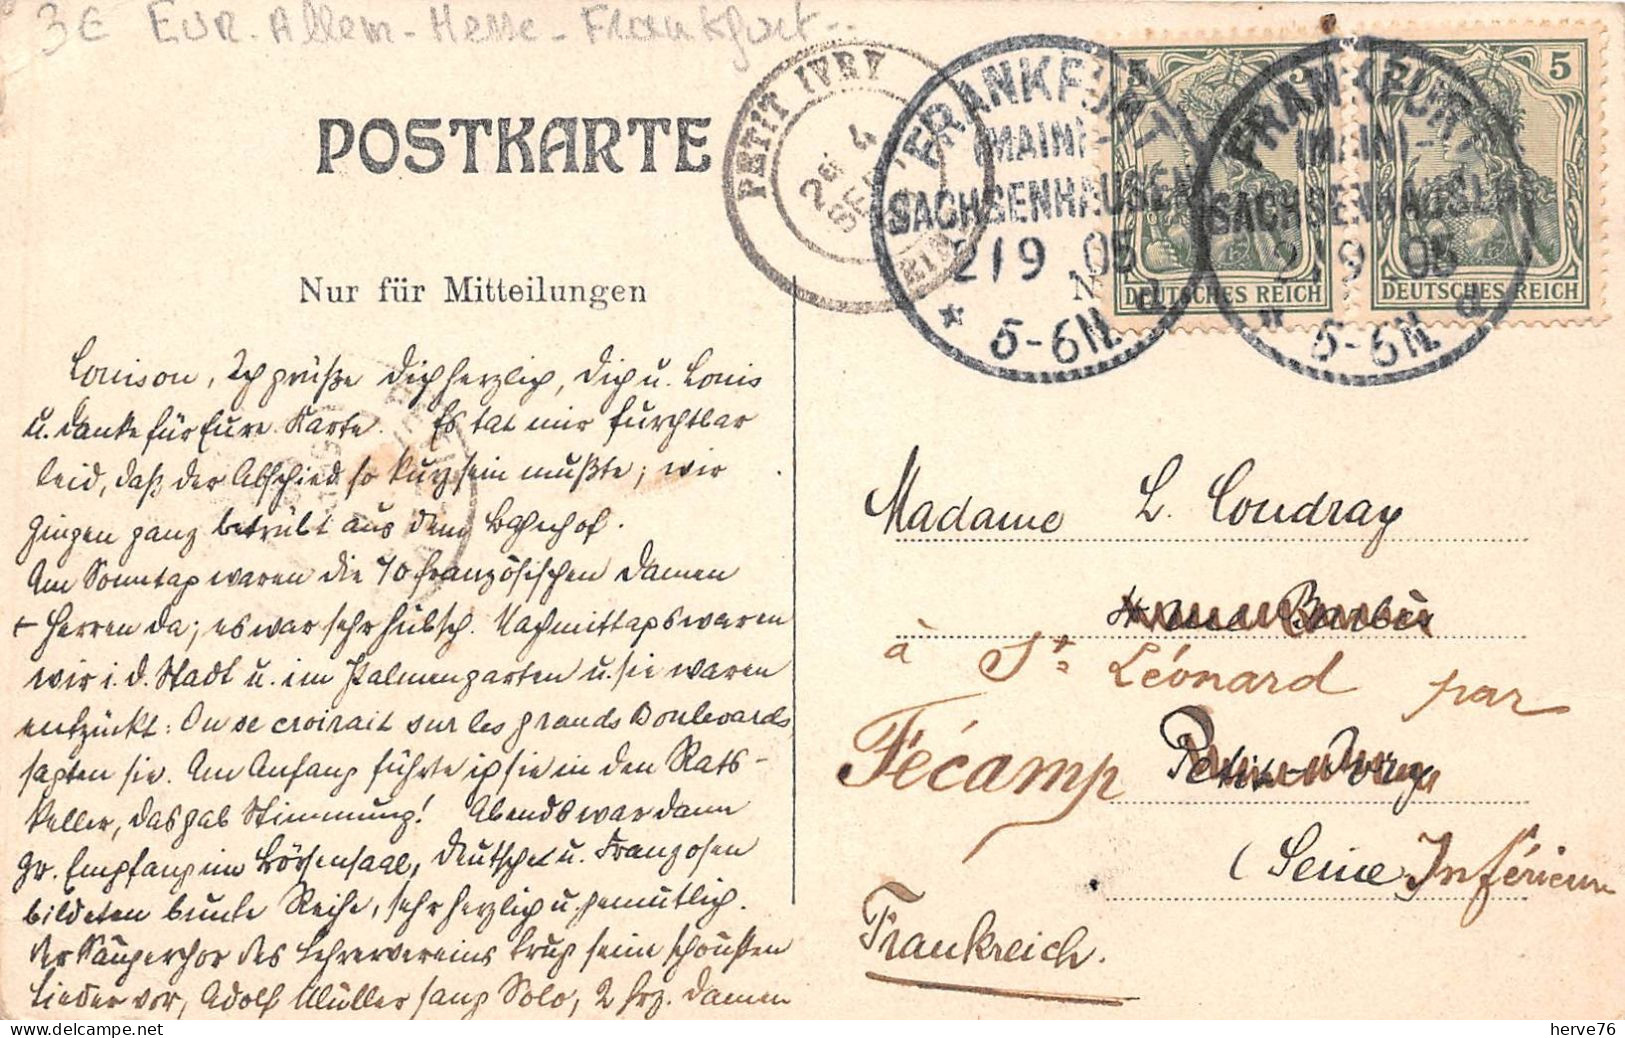 3€ EUR. Allem - Hesse - Frankfurt..
PETIT IVRY
4
SEPT
FRANKFURT
(MAIN)
SACHSENHAUSEN
2/9 05
5-6N.
FRANKFURT
(MAIN)
SACHSENHAUSEN
2/9 05
5-6N.
5 5
DEUTSCHES REICH
5 5
DEUTSCHES REICH
POSTKARTE
Nur für Mitteilungen
Louison, Ich grüße Dich herzlich, Dich u. Louis
u. danke für Eure Karte. Es tat mir furchtbar
leid, daß der Abschied so kurz sein mußte; wir
gingen ganz betrübt aus dem Bahnhof.
Am Sonntag waren die 70 französischen Damen
+ Herren da; es war sehr hübsch. Nachmittags waren
wir i. d. Stadt u. im Palmengarten u. sie waren
entzückt: On se croirait sur les grands Boulevards
sagten sie. Am Anfang führte ich sie in den Rats-
keller, das gab Stimmung! Abends war dann
gr. Empfang im Börsensaal, Deutsche u. Franzosen
bildeten bunte Reihe, sehr herzlich u. gemütlich.
Der Sängerchor des Lehrervereins trug seine schönsten
Lieder vor, Adolf Müller sang Solo, 2 frz. Damen
Madame L. Coudray
Rue Barbès
à St. Léonard par
Fécamp
Petit-Ivry
(Seine Inférieure
Frankreich.
herve76